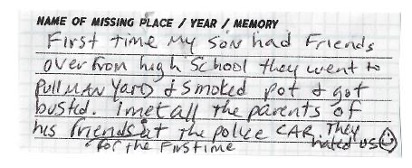 NAME OF MISSING PLACE / YEAR / MEMORY
First time my son had Friends
over from high School they went to
Pullman Yard & Smoked pot & got
busted. I met all the parents of
his friends at the police CAR. They
for the Firstime hated us